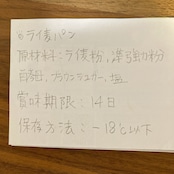 ⑥ライ麦パン
原材料:ライ麦粉、準強力粉
自家酵母、ブラウンシュガー、塩
賞味期限:14日
保存方法:-18℃以下